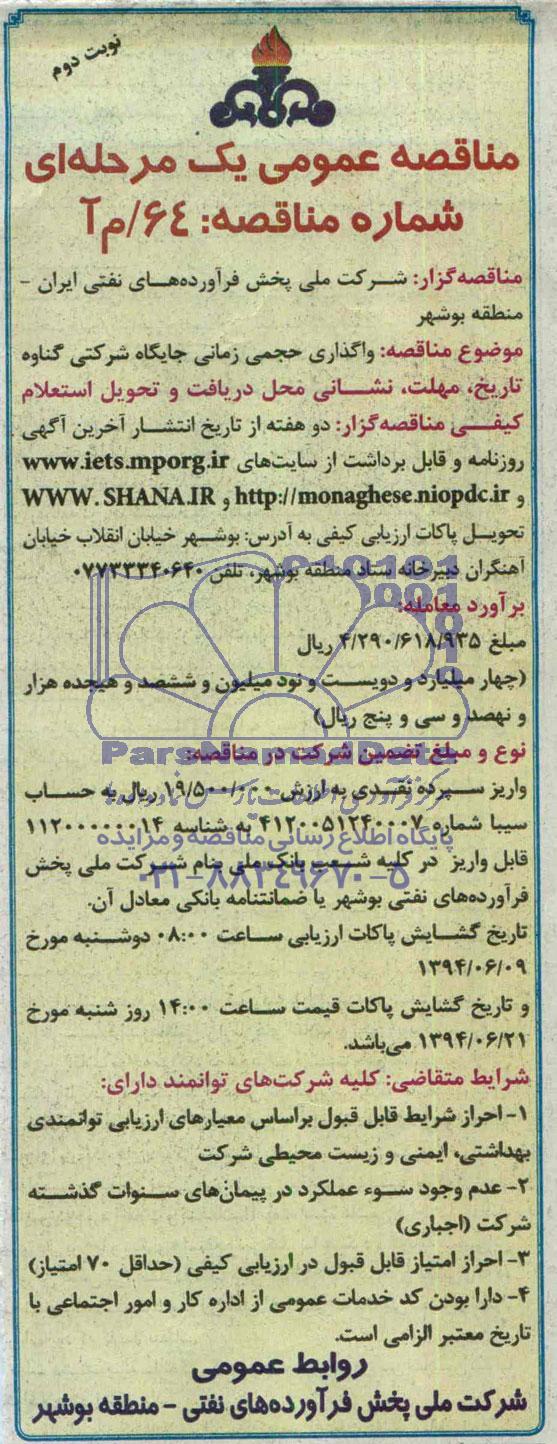 نوبت دوم
مناقصه عمومی یک مرحله‌ای
شماره مناقصه: ٦٤/م‌آ
مناقصه‌گزار: شرکت ملی پخش فرآورده‌های نفتی ایران -
منطقه بوشهر
موضوع مناقصه: واگذاری حجمی زمانی جایگاه شرکتی گناوه
تاریخ، مهلت، نشانی محل دریافت و تحویل استعلام
کیفی مناقصه‌گزار: دو هفته از تاریخ انتشار آخرین آگهی
روزنامه و قابل برداشت از سایت‌های www.iets.mporg.ir
و http://monaghese.niopdc.ir و WWW.SHANA.IR
تحویل پاکات ارزیابی کیفی به آدرس: بوشهر خیابان انقلاب خیابان
آهنگران دبیرخانه ستاد منطقه بوشهر، تلفن ۰۷۷۳۳۳۴۰۶۴۰
برآورد معامله:
مبلغ ۴/۲۹۰/۶۱۸/۹۳۵ ریال
(چهار میلیارد و دویست و نود میلیون و ششصد و هیجده هزار
و نهصد و سی و پنج ریال)
ParsNamadData
نوع و مبلغ تضمین شرکت در مناقصه:
واریز سپرده نقدی به ارزش ۱۹/۵۰۰/۰۰۰ ریال به حساب
سیبا شماره ۴۱۲۰۰۵۱۲۴۰۰۰۷ به شناسه ۱۱۲۰۰۰۰۰۰۰۱۴
پایگاه اطلاع رسانی مناقصه و مزایده
قابل واریز در کلیه شعب بانک ملی بنام شرکت ملی پخش
۰۲۱-۸۸۳۴۹۶۷۰-۵
فرآورده‌های نفتی بوشهر یا ضمانتنامه بانکی معادل آن.
تاریخ گشایش پاکات ارزیابی ساعت ۰۸:۰۰ دوشنبه مورخ
۱۳۹۴/۰۶/۰۹
و تاریخ گشایش پاکات قیمت ساعت ۱۴:۰۰ روز شنبه مورخ
۱۳۹۴/۰۶/۲۱ می‌باشد.
شرایط متقاضی: کلیه شرکت‌های توانمند دارای:
۱- احراز شرایط قابل قبول براساس معیارهای ارزیابی توانمندی
بهداشتی، ایمنی و زیست محیطی شرکت
۲- عدم وجود سوء عملکرد در پیمان‌های سنوات گذشته
شرکت (اجباری)
۳- احراز امتیاز قابل قبول در ارزیابی کیفی (حداقل ۷۰ امتیاز)
۴- دارا بودن کد خدمات عمومی از اداره کار و امور اجتماعی با
تاریخ معتبر الزامی است.
روابط عمومی
شرکت ملی پخش فرآورده‌های نفتی - منطقه بوشهر